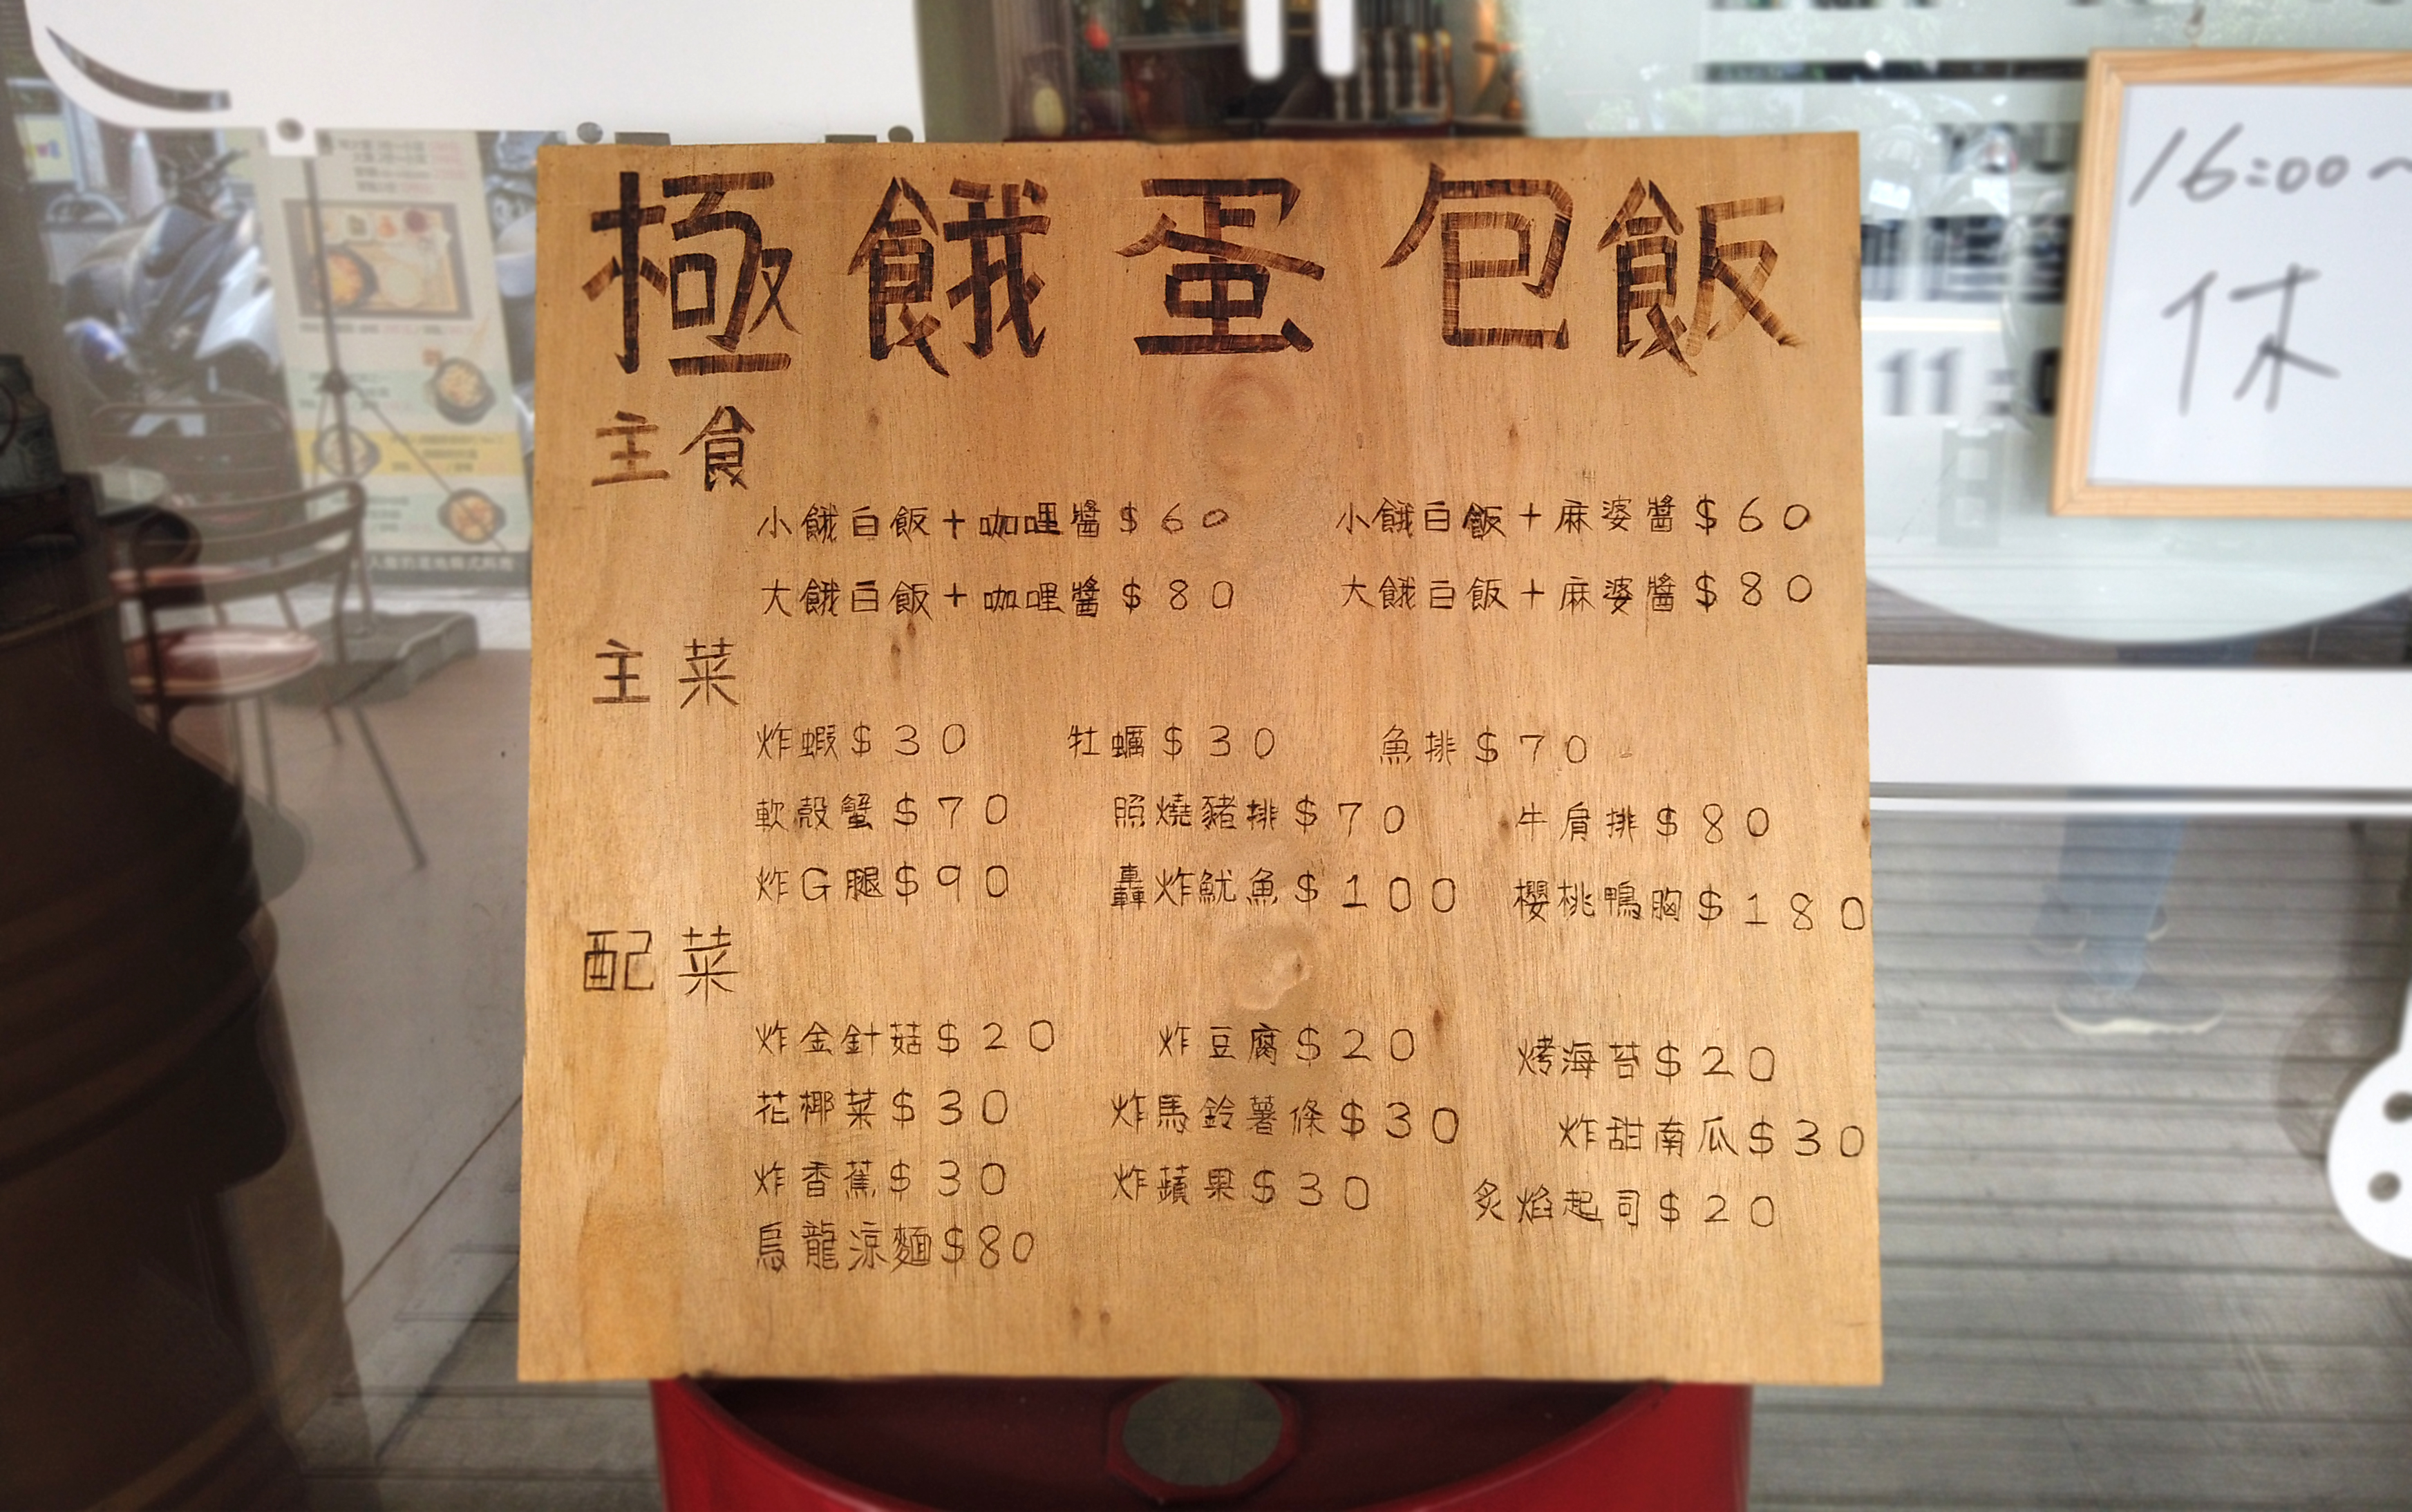 極餓蛋包飯
主食
小餓白飯+咖哩醬$60 小餓白飯+麻婆醬$60
大餓白飯+咖哩醬$80 大餓白飯+麻婆醬$80
主菜
炸蝦$30 牡蠣$30 魚排$70
軟殼蟹$70 照燒豬排$70 牛肩排$80
炸G腿$90 轟炸魷魚$100 櫻桃鴨胸$180
配菜
炸金針菇$20 炸豆腐$20 烤海苔$20
花椰菜$30 炸馬鈴薯條$30 炸甜南瓜$30
炸香蕉$30 炸蘋果$30 炙焰起司$20
烏龍涼麵$80
16:00~
休
11: